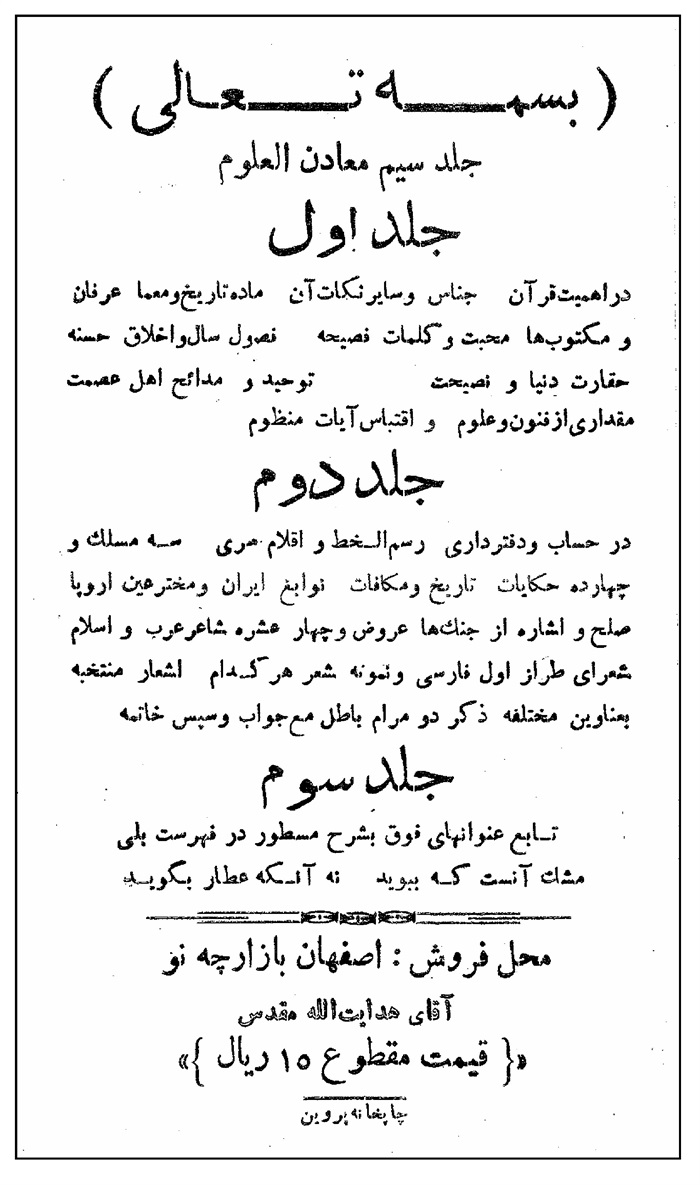 ( بسمه تعالی )
جلد سیم معادن العلوم
جلد اول
در اهمیت قرآن جناس وسایر نکات آن ماده تاریخ ومعما عرفان
و مکتوب‌ها محبت وکلمات فصیحه فصول سال واخلاق حسنه
حقارت دنیا و نصیحت توحید و مدائح اهل عصمت
مقداری از فنون وعلوم و اقتباس آیات منظوم
جلد دوم
در حساب ودفترداری رسم‌الخط و اقلام هری سه مسلك و
چهارده حکایات تاریخ ومکافات نوابغ ایران ومخترعین اروپا
صلح و اشاره از جنك‌ها عروض وچهار عشره شاعر عرب و اسلام
شعرای طراز اول فارسی ونمونه شعر هر کدام اشعار منتخبه
بعناوین مختلفه ذکر دو مرام باطل مع جواب وسپس خاتمه
جلد سوم
تابع عنوانهای فوق بشرح مسطور در فهرست بلی
مشك آنست که ببوید نه آنکه عطار بگوید
محل فروش : اصفهان بازارچه نو
آقای هدایت‌الله مقدس
«{ قیمت مقطوع ۱۵ ریال }»
چاپخانه پروین